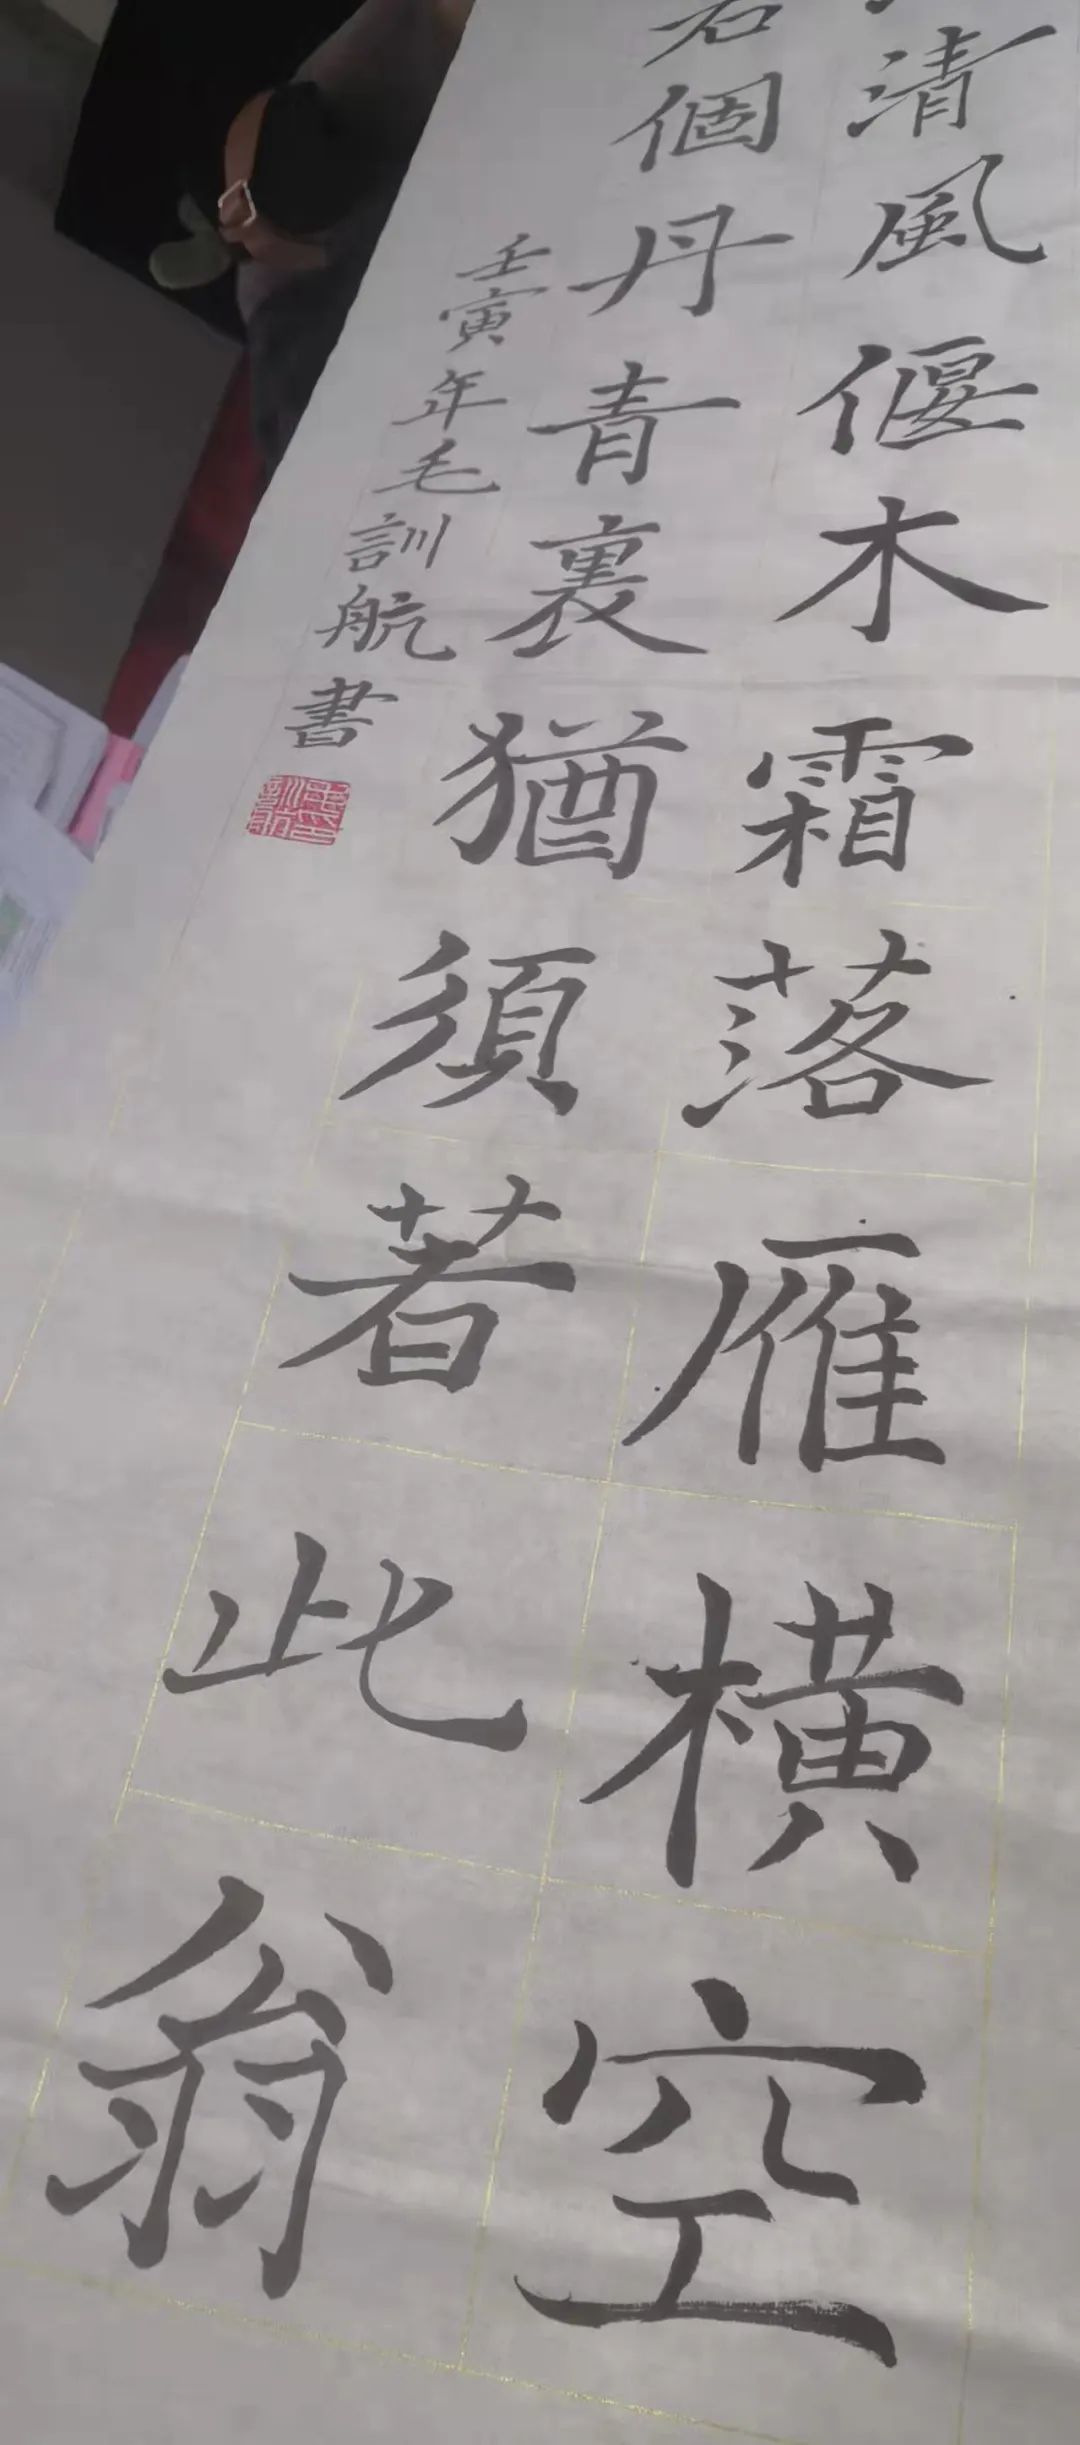 清風偃木霜落雁横空
若個丹青裏猶須著此翁
壬寅年毛訓航書